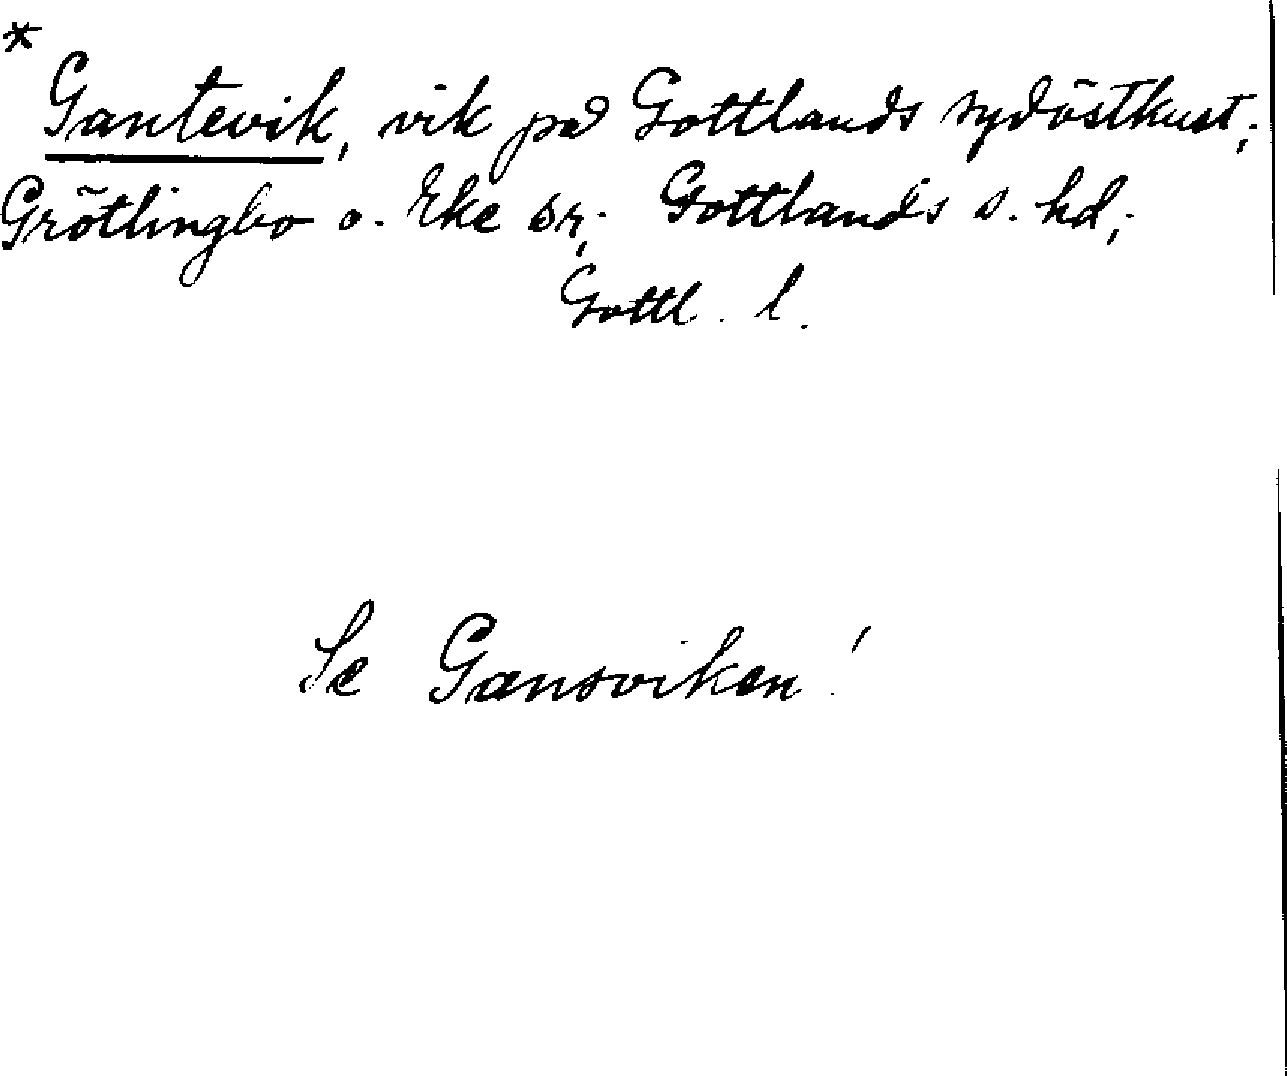 *
Gantevik, vik på Gottlands sydöstkust;
Grötlingbo o. Eke sr; Gottlands s. hd;
Gottl. l.
Se Gansviken!